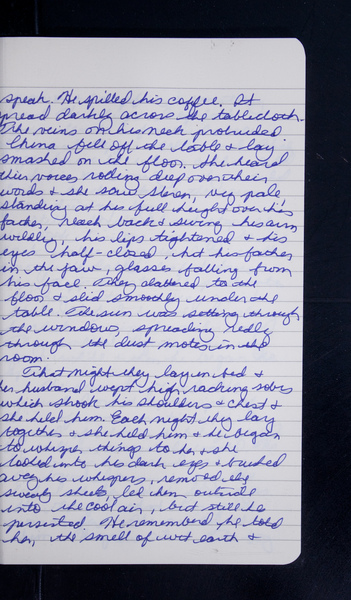 speak. He spilled his coffee. It
spread darkly across the tablecloth.
The veins on his neck protruded.
China fell off the table & lay
smashed on the floor. She heard
their voices rolling deep over their
words & she saw Steven, very pale,
standing at his full height over his
father, reach back & swing his arm
wildly, his lips tightened & his
eyes half-closed, hit his father
in the jaw, glasses falling from
his face. They clattered to the
floor & slid smoothly under the
table. The sun was setting through
the windows, spreading redly
through the dust motes in the
room.
That night they lay in bed &
her husband wept high, racking sobs
which shook his shoulders & chest &
she held him. Each night they lay
together & she held him & he began
to whisper things to her & she
looked into his dark eyes & brushed
away his whispers, removed the
sweaty sheets, led them outside
into the cool air, but still he
persisted. He remembered, he told
her, the smell of wet earth &